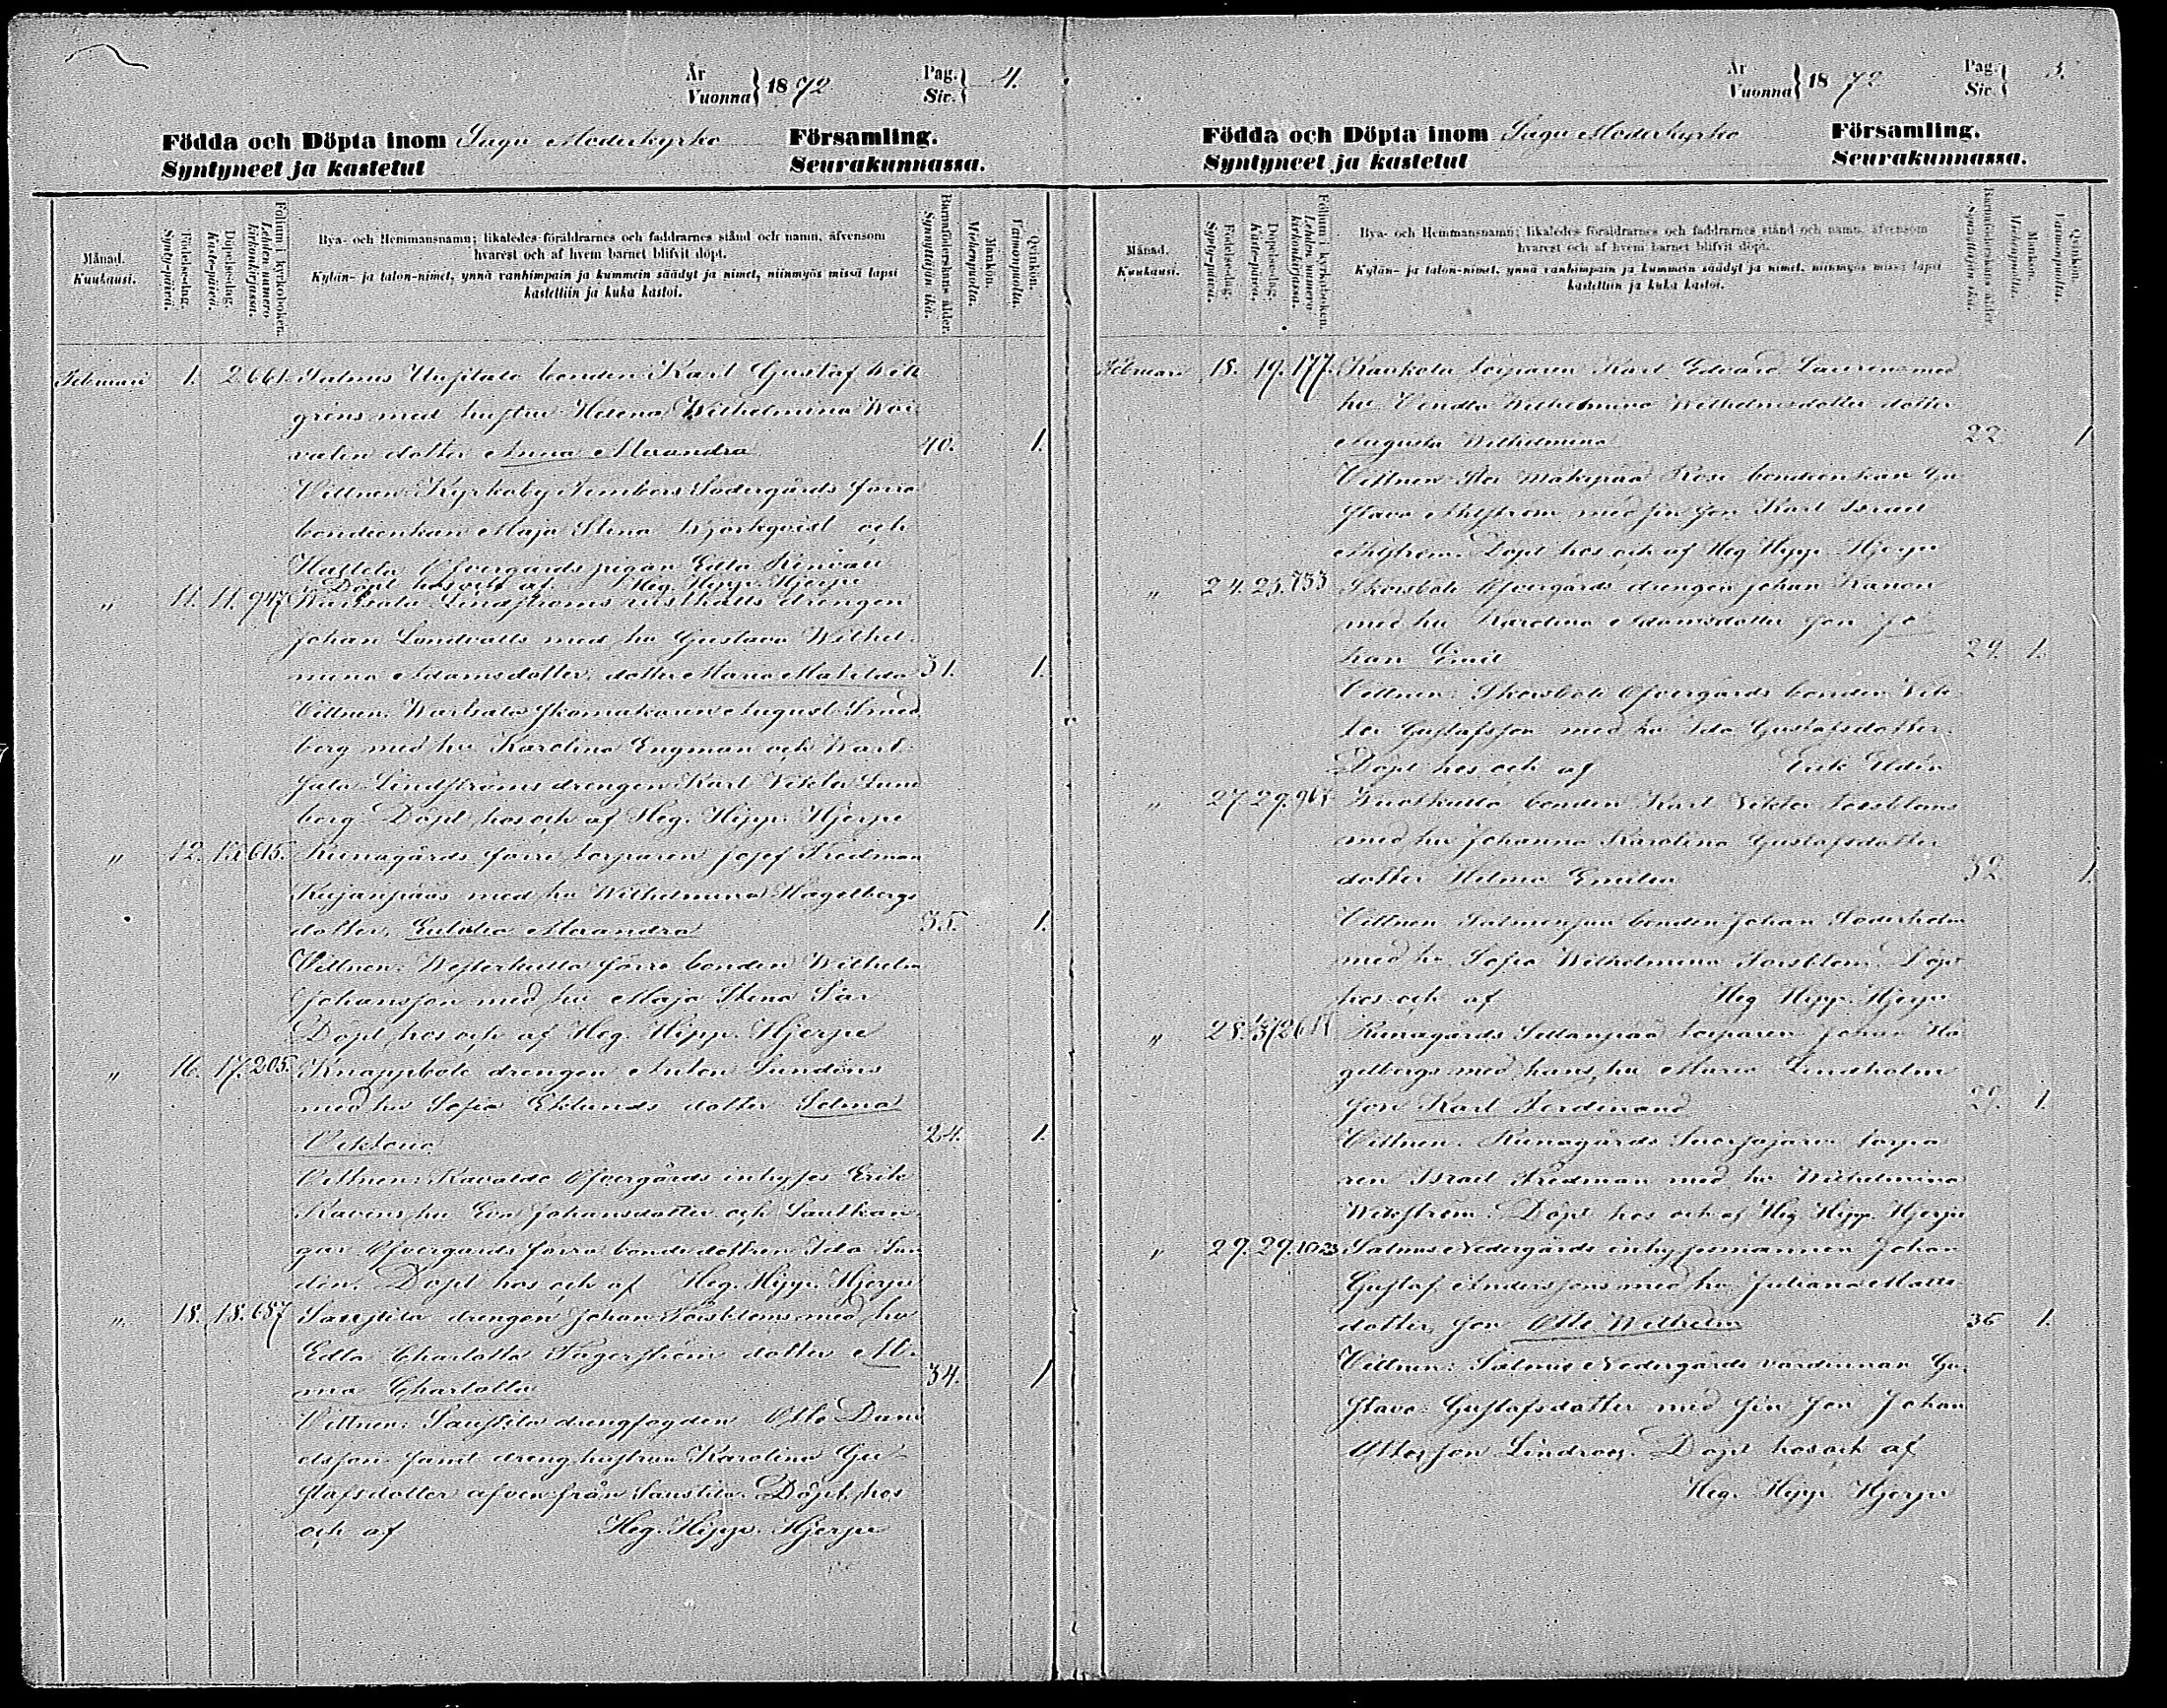 År
Vuonna } 1872
Pag.
Siv. } 4.
Födda och Döpta inom Sagu Moderkyrko Församling.
Syntyneet ja kastetut Seurakunnassa.
Månad.
Kuukausi.
Födelse-dag.
Synty-päivä.
Döpelse-dag.
Kaste-päivä.
Folium i kyrkoboken.
Lehden numero kirkonkirjassa.
Bya- och Hemmansnamn; likaledes föräldrarnes och faddrarnes stånd och namn, äfvensom
hvarest och af hvem barnet blifvit döpt.
Kylän- ja talon-nimet, ynnä vanhimpain ja kummein säädyt ja nimet, niinmyös missä lapsi
kastettiin ja kuka kastoi.
Barnaföderskans ålder.
Synnyttäjän ikä.
Mankön.
Miehenpuolia.
Qvinkön.
Vaimonpuolia.
Februari 1. 2. 661. Salmus Uusitalo bonden Karl Gustaf
grens med hustru Helena Wilhelmina Wai
valin dotter Anna Alexandra 40. 1.
Vittnen: Kyrkoby Södergårds förra
bondeenkan Maja Stina Björkqvist och
Hafleta Öfvergårds pigan Edla
Döpt hos och af Heg. Hipp. Hjerpe
" 11. 11. 947. Wartsala Lindströms rusthålls drengen
Johan Lundvalls med hu Gustava Wilhel-
mina Adamsdotter, dotter Maria Matilda 31. 1.
Vittnen. Wartsala skomakaren August
berg med hu Karolina Engman och Wart-
sala Lindströms drengen Karl Viktor Lund
berg. Döpt hos och af Heg. Hipp. Hjerpe
" 12. 615. Runagårds förre torparen Josef Fredman
med hu Wilhelmina Hagelbergs
dotter, Alexandra 35. 1.
Vittnen: Westerkulla förre bonden Wilhelm
Johansson med hu Maja Stina
Döpt hos och af Heg. Hipp. Hjerpe
" 16. 17. 205. Knappbole drengen Anton Sundéns
med hu Sofia Eklunds dotter Selma
Viktoria 24. 1.
Vittnen: Öfvergårds inhyses Erik
hu Eva Johansdotter och
Öfvergårds förra bonde dottren Ida Sun
din. Döpt hos och af Heg. Hipp. Hjerpe
" 18. 18. 687 Saustila drengen Johan Forsbloms med hu
Edla Charlotta Fagerström dotter Al-
ma Charlotta 34. 1
Vittnen: Saustila drengfogden Otto
samt dreng hustrun Karolina Gu-
stafsdotter äfven från Saustila. Döpt hos
och af Heg. Hipp. Hjerpe
År
Vuonna } 1872
Pag.
Siv. } 5.
Födda och Döpta inom Sagu Moderkyrko Församling.
Syntyneet ja kastetut Seurakunnassa.
Månad.
Kuukausi.
Födelse-dag.
Synty-päivä.
Döpelse-dag.
Kaste-päivä.
Folium i kyrkoboken.
Lehden numero kirkonkirjassa.
Bya- och Hemmansnamn; likaledes föräldrarnes och faddrarnes stånd och namn, äfvensom
hvarest och af hvem barnet blifvit döpt.
Kylän- ja talon-nimet, ynnä vanhimpain ja kummein säädyt ja nimet, niinmyös missä lapsi
kastettiin ja kuka kastoi.
Barnaföderskans ålder
Synnyttäjän ikä.
Mankön.
Miehenpuolia.
Qvinkön.
Vaimonpuolia.
Februari 18. 19. 177. Karkola torparen Karl Edvard Laurens med
hu Vendla Wilhelmina Wilhelmsdotter dotter
Augusta Wilhelmina 22 1
Vittnen: bondeenkan Gu
stava Ahlström med sin son Karl Israel
Ahlström. Döpt hos och af Heg. Hipp. Hjerpe
" 24. 25. 753 Skoisbole Öfvergårds drengen Johan
med hu Karolina Adamsdotter son Jo
han Emil 29. 1.
Vittnen: Skoisbole Öfvergårds bonden Vik
tor Gustafsson med hu Ida Gustafsdotter.
Döpt hos och af Erik
" 27. 29. bonden Karl Viktor Forsbloms
med hu Johanna Karolina Gustafsdotter
dotter Helma Emilia 32 1.
Vittnen bonden Johan Söderholm
med hu Sofia Wilhelmina Forsblom. Döpt
hos och af Heg. Hipp. Hjerpe
" 28. Runagårds torparen Johan Ha
gelbergs med hans hu Maria Lindholm
son Karl Ferdinand 29. 1.
Vittnen. Runagårds torpa
ren Israel Fredman med hu Wilhelmina
Wikström. Döpt hos och af Heg. Hipp. Hjerpe
" 29. 29. Salmus Nedergårds inhysesmannen Johan
Gustaf Anderssons med hu Juliana Matts
dotter, son Otto Wilhelm 36 1.
Vittnen: Salmus Nedergårds värdinnan Gu-
stava Gustafsdotter med sin son Johan
Ottosson Lindroos. Döpt hos och af
Heg. Hipp. Hjerpe